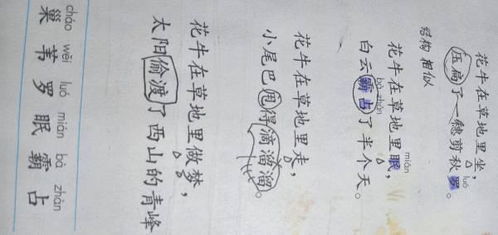 花牛在草地里坐，
luó
压扁了一穗剪秋罗。
结构相似
mián
花牛在草地里眠，
bà zhàn
白云霸占了半个天。
花牛在草地里走，
小尾巴甩得滴溜溜。
花牛在草地里做梦，
太阳偷渡了西山的青峰
cháo wěi luó mián bà zhàn
巢 苇 罗 眠 霸 占